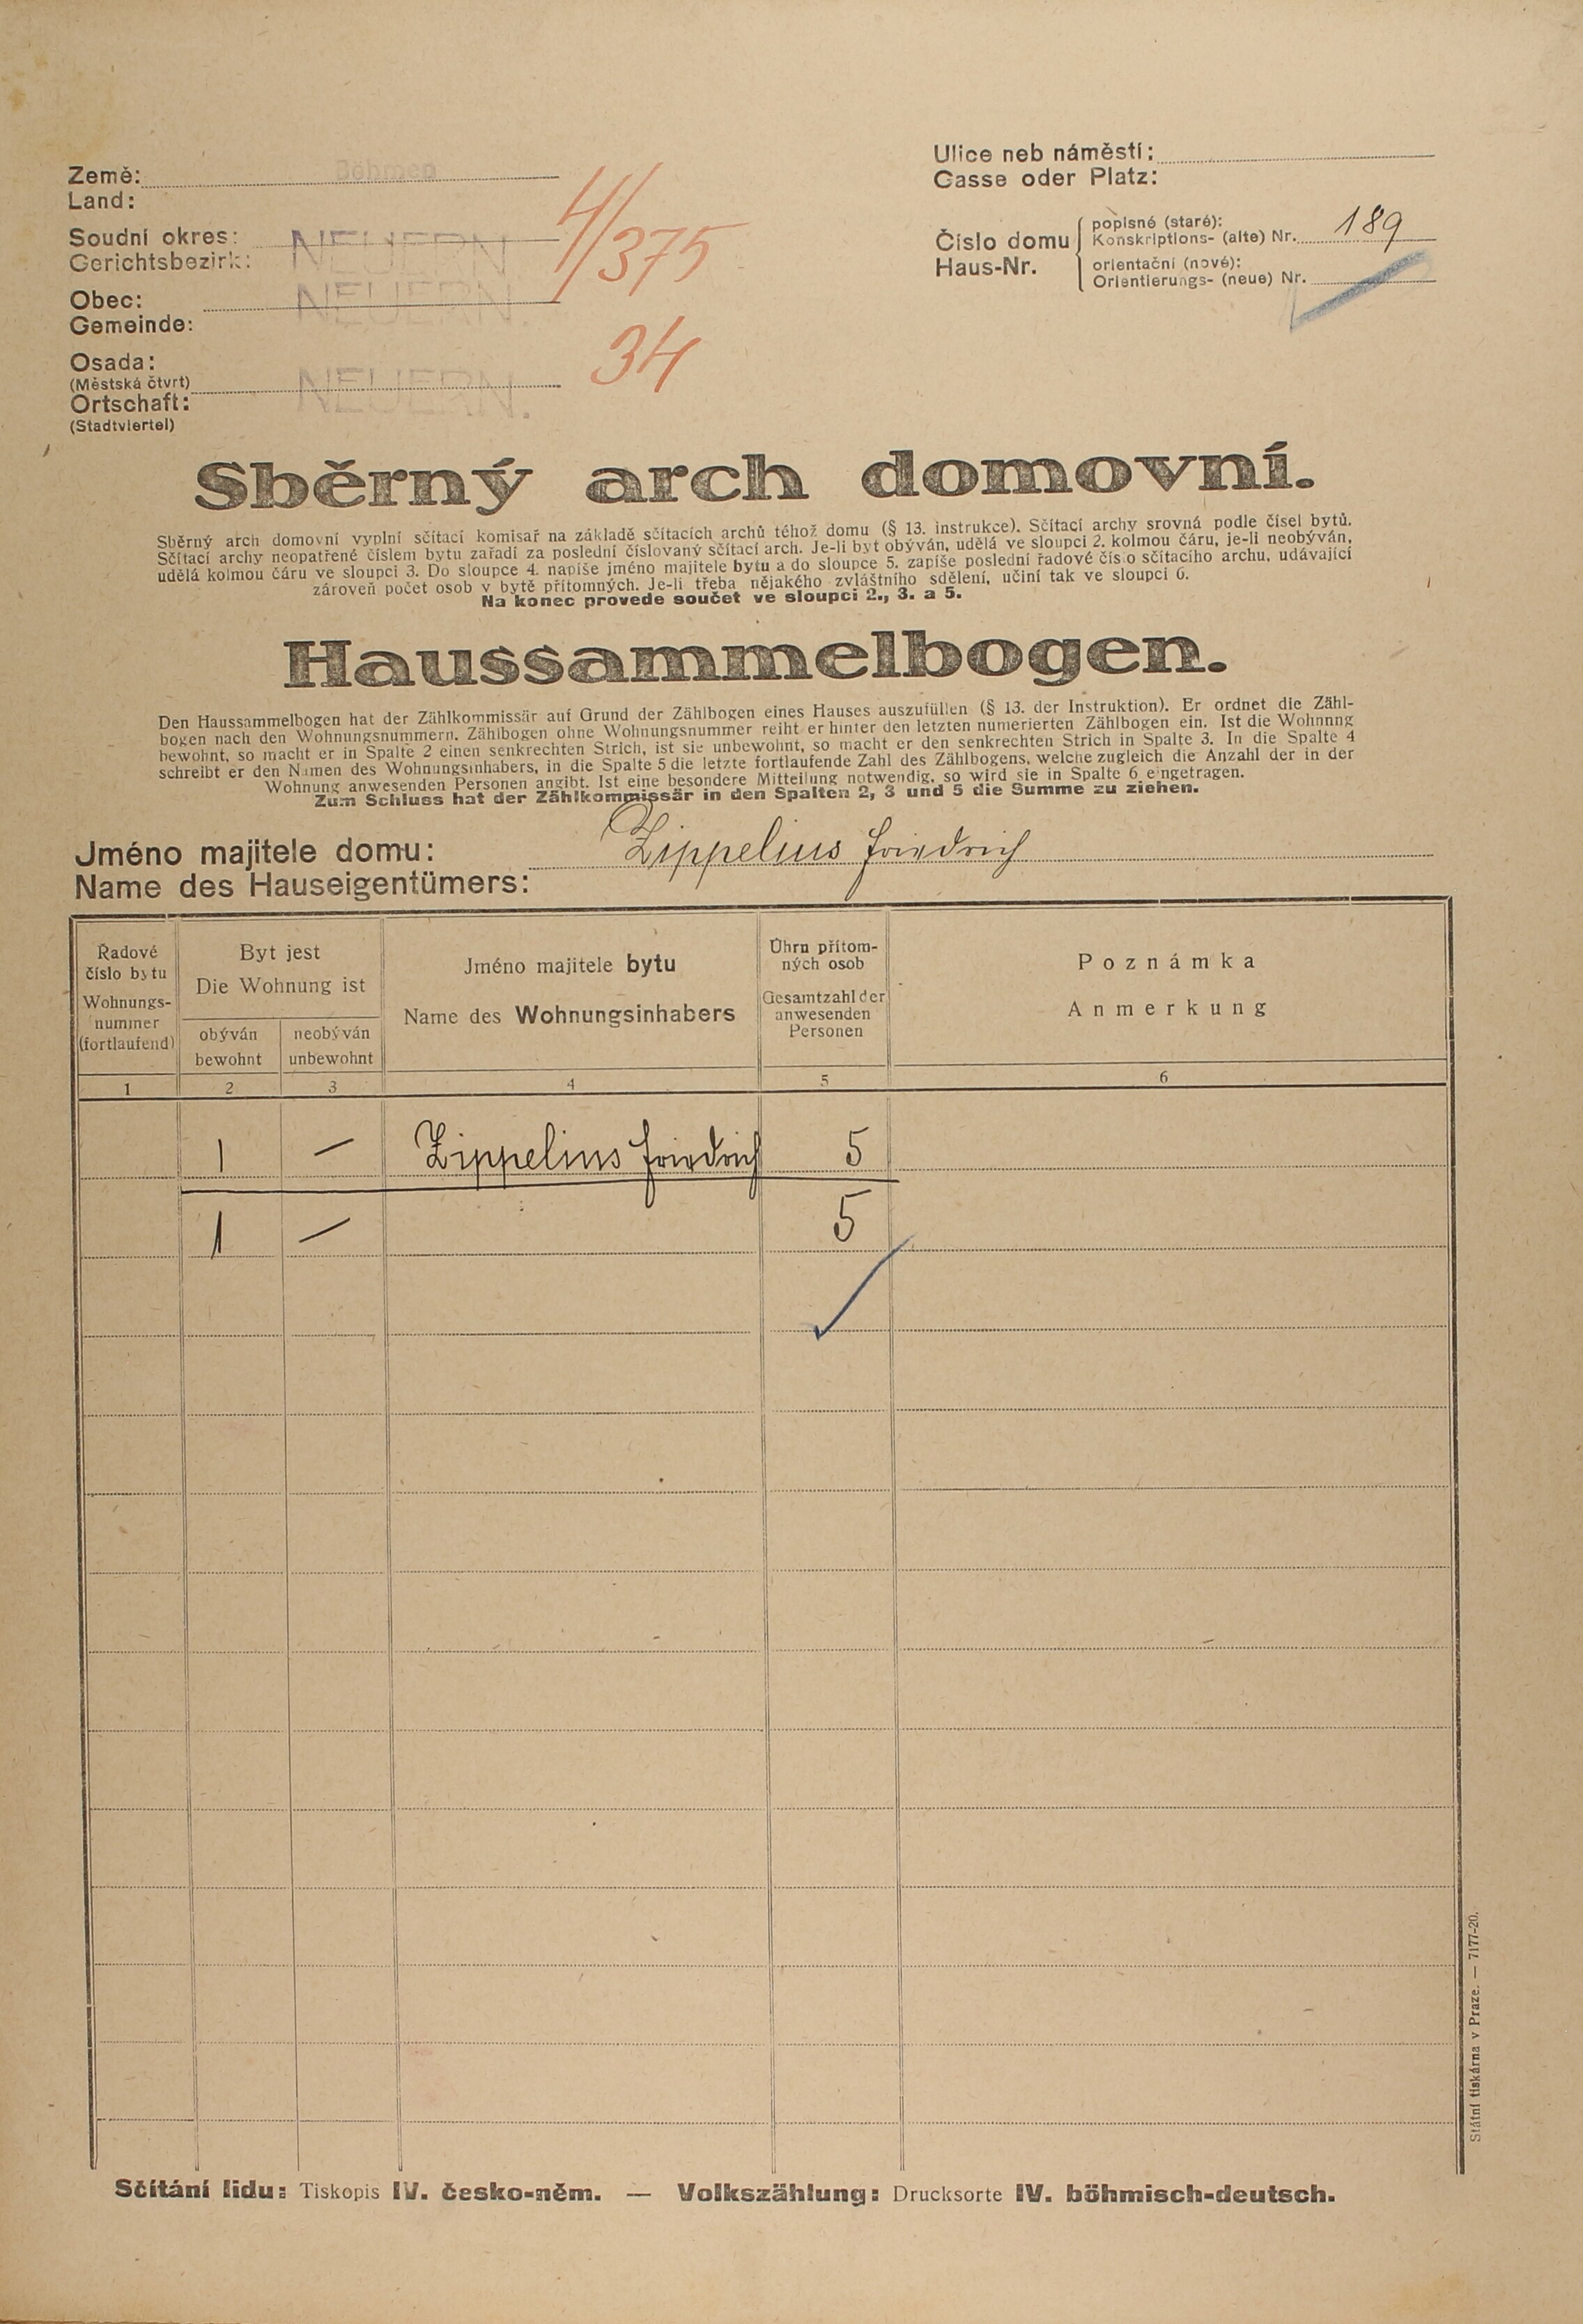 Země: Böhmen
Land:
Soudní okres: NEUERN
Gerichtsbezirk:
Obec: NEUERN.
Gemeinde:
Osada:
(Městská čtvrt) NEUERN.
Ortschaft:
(Stadtviertel)
4/375
34
Ulice neb náměstí:
Gasse oder Platz:
Číslo domu
Haus-Nr.
popisné (staré):
Konskriptions- (alte) Nr. 189
orientační (nové):
Orientierungs- (neue) Nr.
Sběrný arch domovní.
Sběrný arch domovní vyplní sčítací komisař na základě sčítacích archů téhož domu (§ 13. instrukce). Sčítací archy srovná podle čísel bytů.
Sčítací archy neopatřené číslem bytu zařadí za poslední číslovaný sčítací arch. Je-li byt obýván, udělá ve sloupci 2. kolmou čáru, je-li neobýván,
udělá kolmou čáru ve sloupci 3. Do sloupce 4. napíše jméno majitele bytu a do sloupce 5. zapíše poslední řadové číslo sčítacího archu, udávající
zároveň počet osob v bytě přítomných. Je-li třeba nějakého zvláštního sdělení, učiní tak ve sloupci 6.
Na konec provede součet ve sloupci 2., 3. a 5.
Haussammelbogen.
Den Haussammelbogen hat der Zählkommissär auf Grund der Zählbogen eines Hauses auszufüllen (§ 13. der Instruktion). Er ordnet die Zähl-
bogen nach den Wohnungsnummern. Zählbogen ohne Wohnungsnummer reiht er hinter den letzten numerierten Zählbogen ein. Ist die Wohnnng
bewohnt, so macht er in Spalte 2 einen senkrechten Strich, ist sie unbewohnt, so macht er den senkrechten Strich in Spalte 3. In die Spalte 4
schreibt er den Namen des Wohnungsinhabers, in die Spalte 5 die letzte fortlaufende Zahl des Zählbogens, welche zugleich die Anzahl der in der
Wohnung anwesenden Personen angibt. Ist eine besondere Mitteilung notwendig, so wird sie in Spalte 6 eingetragen.
Zum Schluss hat der Zählkommissär in den Spalten 2, 3 und 5 die Summe zu ziehen.
Jméno majitele domu: Zippelius Friedrich
Name des Hauseigentümers:
Řadové
číslo bytu
Wohnungs-
nummer
(fortlaufend)
Byt jest
Die Wohnung ist
obýván
bewohnt
neobýván
unbewohnt
Jméno majitele bytu
Name des Wohnungsinhabers
Úhrn přítom-
ných osob
Gesamtzahl der
anwesenden
Personen
Poznámka
Anmerkung
1 2 3 4 5 6
1 — Zippelius Friedrich 5
1 — 5
Státní tiskárna v Praze. — 7177-20.
Sčítání lidu: Tiskopis IV. česko-něm. — Volkszählung: Drucksorte IV. böhmisch-deutsch.